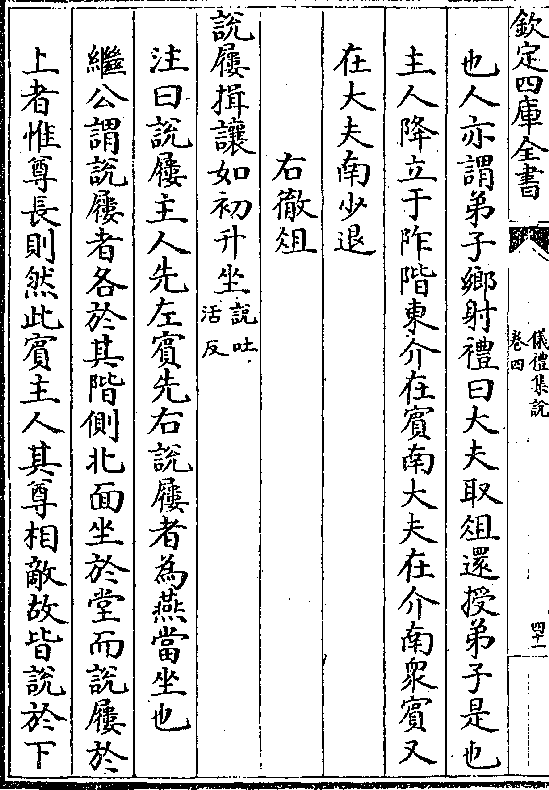 欽定四庫全書
儀禮集說
卷四
四十一
也人亦謂弟子鄉射禮曰大夫取俎還授弟子是也
主人降立于阼階東介在賓南大夫在介南衆賓又
在大夫南少退
右徹俎
說屨揖讓如初升坐說吐活反
注曰說屨主人先左賓先右說屨者為燕當坐也
繼公謂說屨者各於其階側北面坐於堂而說屨於
上者惟尊長則然此賓主人其尊相敵故皆說於下